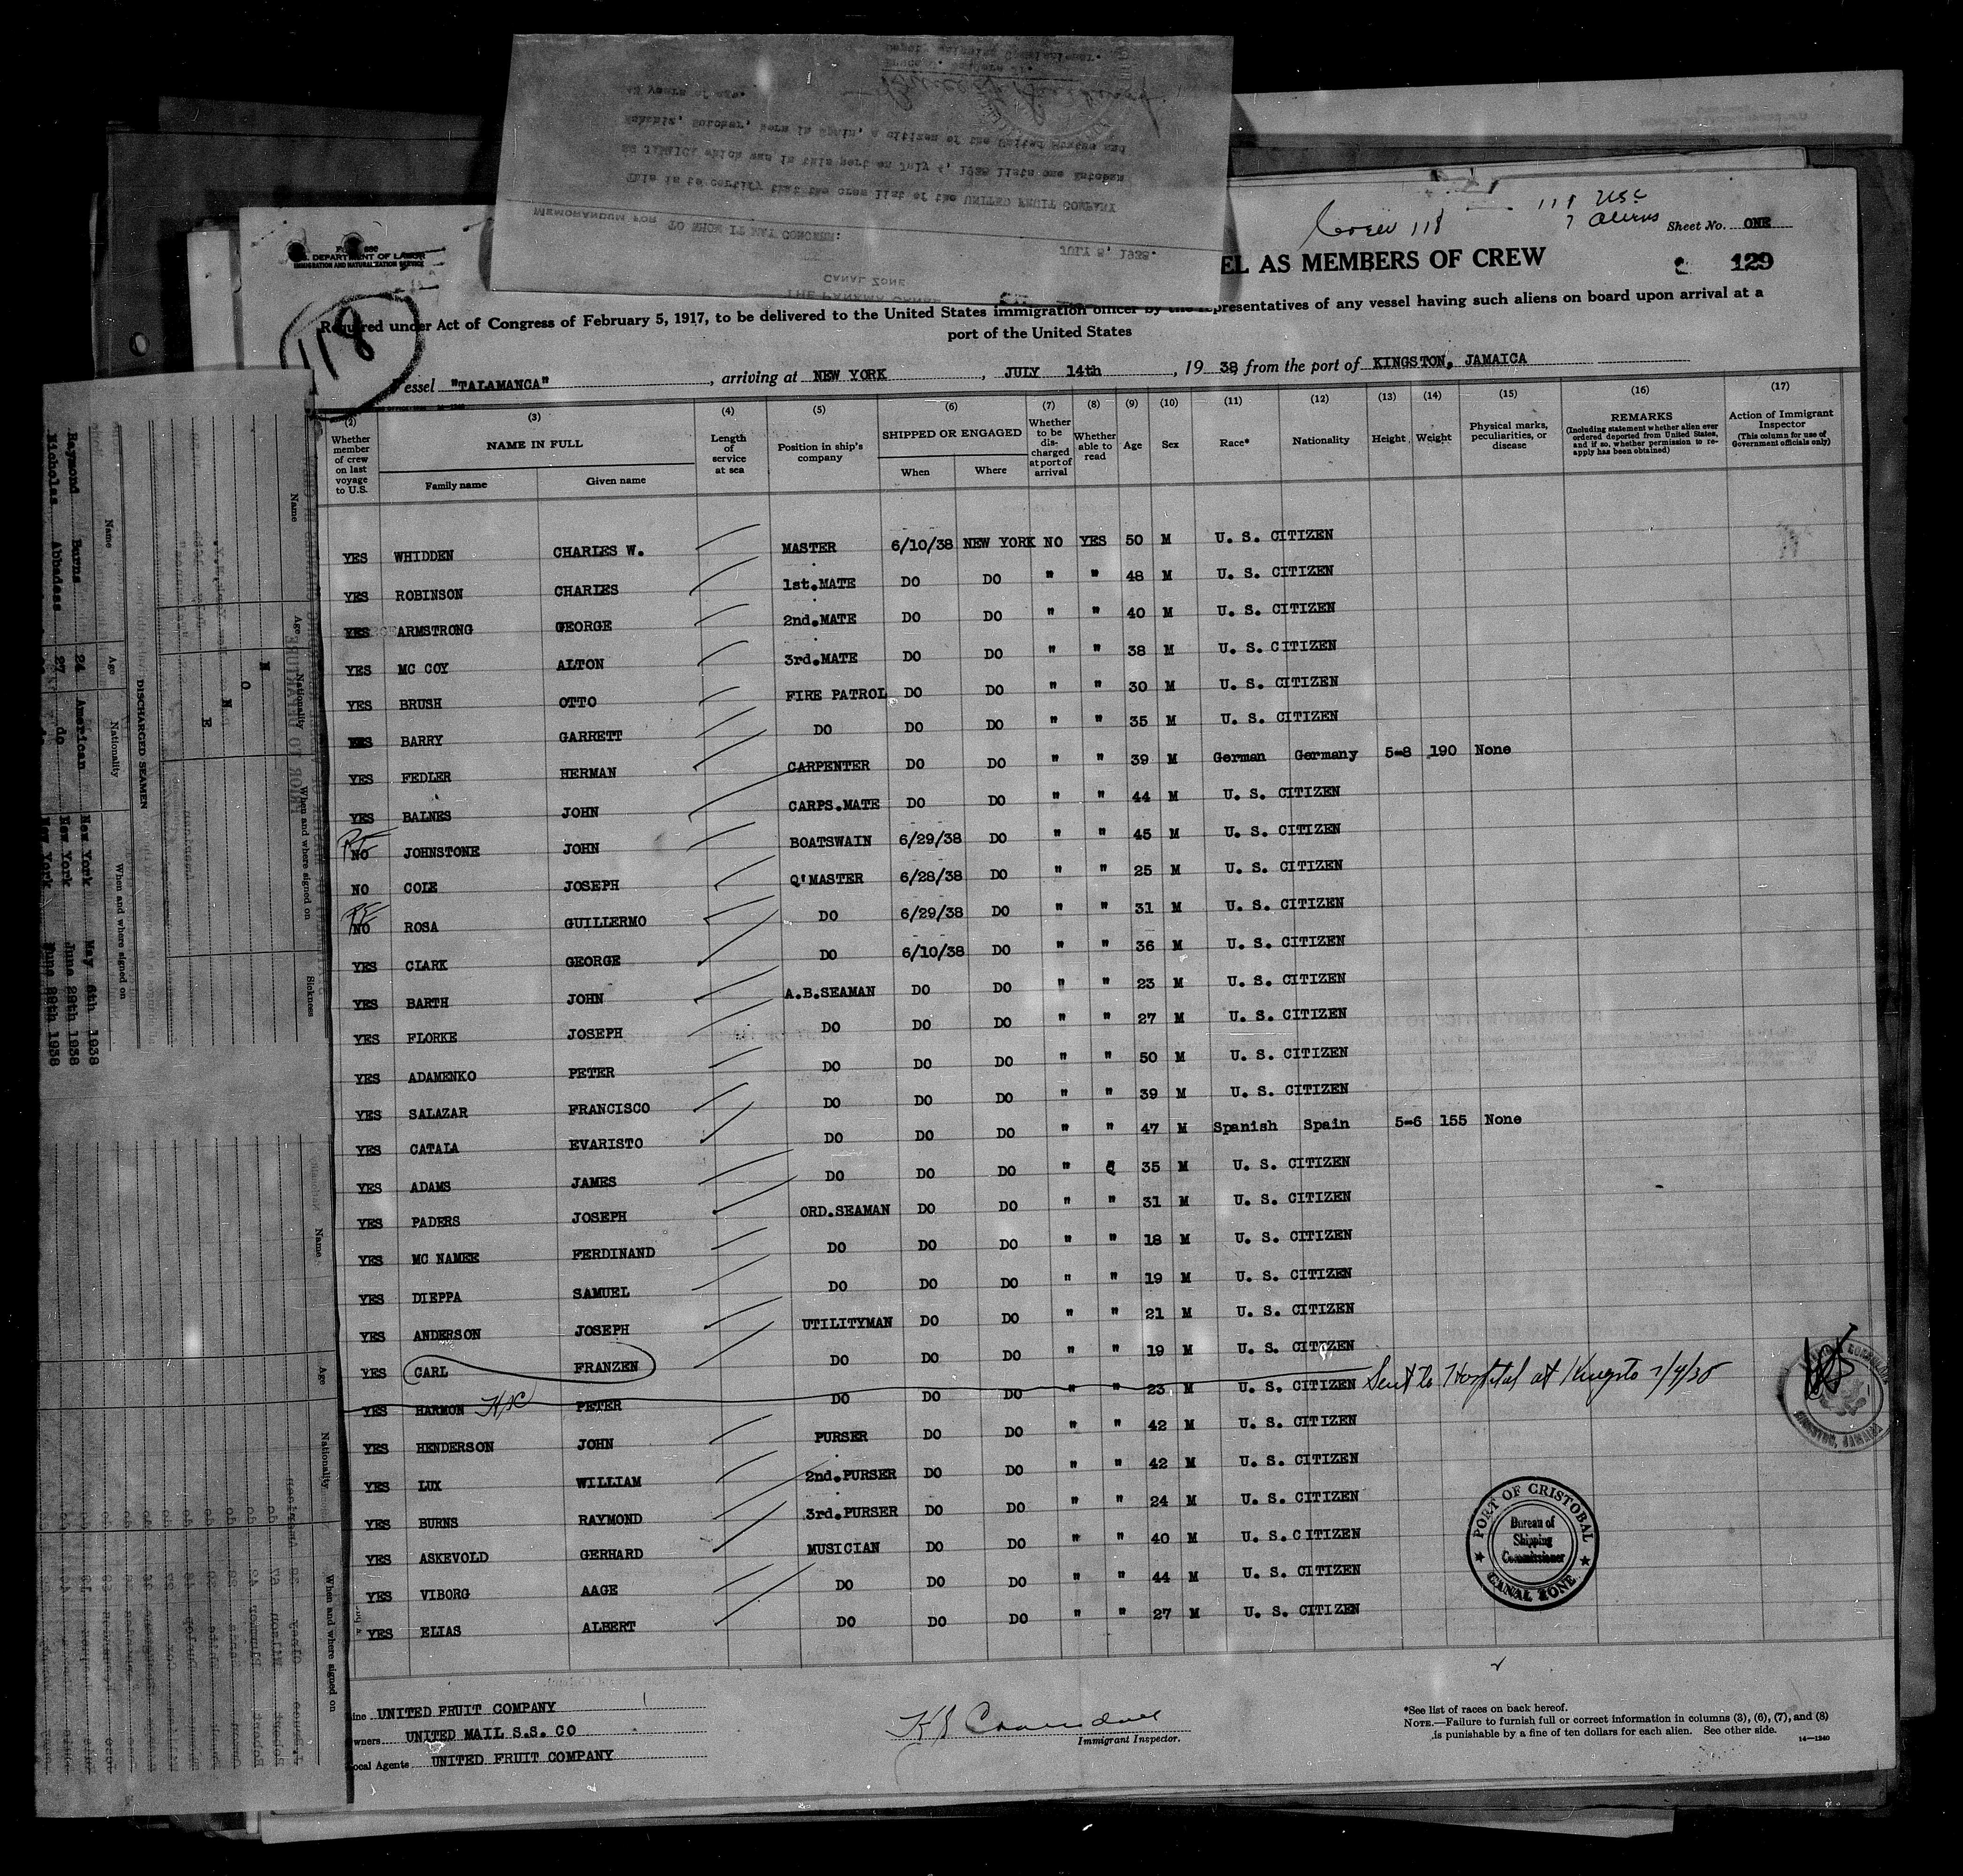 Deputy Shipping Commissioner.
45 years of age.
Butcher, born in Spain, a citizen of the United States and
SS JAMAICA which was in this port on July 4, 1938 lists one Esteban
This is to certify that the crew list of the UNITED FRUIT COMPANY
MEMORANDUM FOR TO WHOM IT MAY CONCERN:
JULY 8, 1938.
CANAL ZONE
THE PANAMA CANAL
Crew 118
111 USC
7 Aliens
Sheet No. ONE
U.S. DEPARTMENT OF LABOR
IMMIGRATION AND NATURALIZATION SERVICE
EL AS MEMBERS OF CREW
129
118
Required under Act of Congress of February 5, 1917, to be delivered to the United States immigration officer by the representatives of any vessel having such aliens on board upon arrival at a
port of the United States
Vessel "TALAMANCA", arriving at NEW YORK, JULY 14th, 1938, from the port of KINGSTON, JAMAICA
(2) (3) (4) (5) (6) (7) (8) (9) (10) (11) (12) (13) (14) (15) (16) (17)
Whether member of crew on last voyage to U.S.
NAME IN FULL
Family name Given name
Length of service at sea
Position in ship's company
SHIPPED OR ENGAGED
When Where
Whether to be discharged at port of arrival
Whether able to read
Age Sex Race* Nationality Height Weight
Physical marks, peculiarities, or disease
REMARKS
(Including statement whether alien ever ordered deported from United States, and if so, whether permission to reapply has been obtained)
Action of Immigrant Inspector
(This column for use of Government officials only)
YES WHIDDEN CHARLES W. MASTER 6/10/38 NEW YORK NO YES 50 M U. S. CITIZEN
YES ROBINSON CHARLES 1st.MATE DO DO " " 48 M U. S. CITIZEN
YES ARMSTRONG GEORGE 2nd.MATE DO DO " " 40 M U. S. CITIZEN
YES MC COY ALTON 3rd.MATE DO DO " " 38 M U. S. CITIZEN
YES BRUSH OTTO FIRE PATROL DO DO " " 30 M U. S. CITIZEN
YES BARRY GARRETT DO DO DO " " 35 M U. S. CITIZEN
YES FEDLER HERMAN CARPENTER DO DO " " 39 M German Germany 5-8 190 None
YES BALNES JOHN CARPS.MATE DO DO " " 44 M U. S. CITIZEN
RE NO JOHNSTONE JOHN BOATSWAIN 6/29/38 DO " " 45 M U. S. CITIZEN
NO COLE JOSEPH Q'MASTER 6/28/38 DO " " 25 M U. S. CITIZEN
RE NO ROSA GUILLERMO DO 6/29/38 DO " " 31 M U. S. CITIZEN
YES CLARK GEORGE DO 6/10/38 DO " " 36 M U. S. CITIZEN
YES BARTH JOHN A.B.SEAMAN DO DO " " 23 M U. S. CITIZEN
YES FLORKE JOSEPH DO DO DO " " 27 M U. S. CITIZEN
YES ADAMENKO PETER DO DO DO " " 50 M U. S. CITIZEN
YES SALAZAR FRANCISCO DO DO DO " " 39 M U. S. CITIZEN
YES CATALA EVARISTO DO DO DO " " 47 M Spanish Spain 5-6 155 None
YES ADAMS JAMES DO DO DO " " 35 M U. S. CITIZEN
YES PADERS JOSEPH ORD.SEAMAN DO DO " " 31 M U. S. CITIZEN
YES MC NAMEE FERDINAND DO DO DO " " 18 M U. S. CITIZEN
YES DIEPPA SAMUEL DO DO DO " " 19 M U. S. CITIZEN
YES ANDERSON JOSEPH UTILITYMAN DO DO " " 21 M U. S. CITIZEN
YES CARL FRANZEN DO DO DO " " 19 M U. S. CITIZEN
YES HARMON PETER DO DO DO " " 23 M U. S. CITIZEN Sent to Hospital at Kingsto
YES HENDERSON JOHN PURSER DO DO " " 42 M U. S. CITIZEN
YES LUX WILLIAM 2nd.PURSER DO DO " " 42 M U. S. CITIZEN
YES BURNS RAYMOND 3rd.PURSER DO DO " " 24 M U. S. CITIZEN
YES ASKEVOLD GERHARD MUSICIAN DO DO " " 40 M U. S. CITIZEN
YES VIBORG AAGE DO DO DO " " 44 M U. S. CITIZEN
YES ELIAS ALBERT DO DO DO " " 27 M U. S. CITIZEN
PORT OF CRISTOBAL
Bureau of
Shipping
Commissioner
CANAL ZONE
Line UNITED FRUIT COMPANY
Owners UNITED MAIL S.S. CO
Local Agents UNITED FRUIT COMPANY
Immigrant Inspector.
*See list of races on back hereof.
NOTE.—Failure to furnish full or correct information in columns (3), (6), (7), and (8)
is punishable by a fine of ten dollars for each alien. See other side.
14—1240
PRIOR TO DEPARTURE
Name Age Nationality When and where signed on Sickness
N O N E
DISCHARGED SEAMEN
Name Age Nationality When and where signed on
Raymond Burns 24 American New York May 6th 1938
Nicholas Abbadess 27 do New York June 28th 1938
New York June 28th 1938
Name Age Nationality When and where signed on